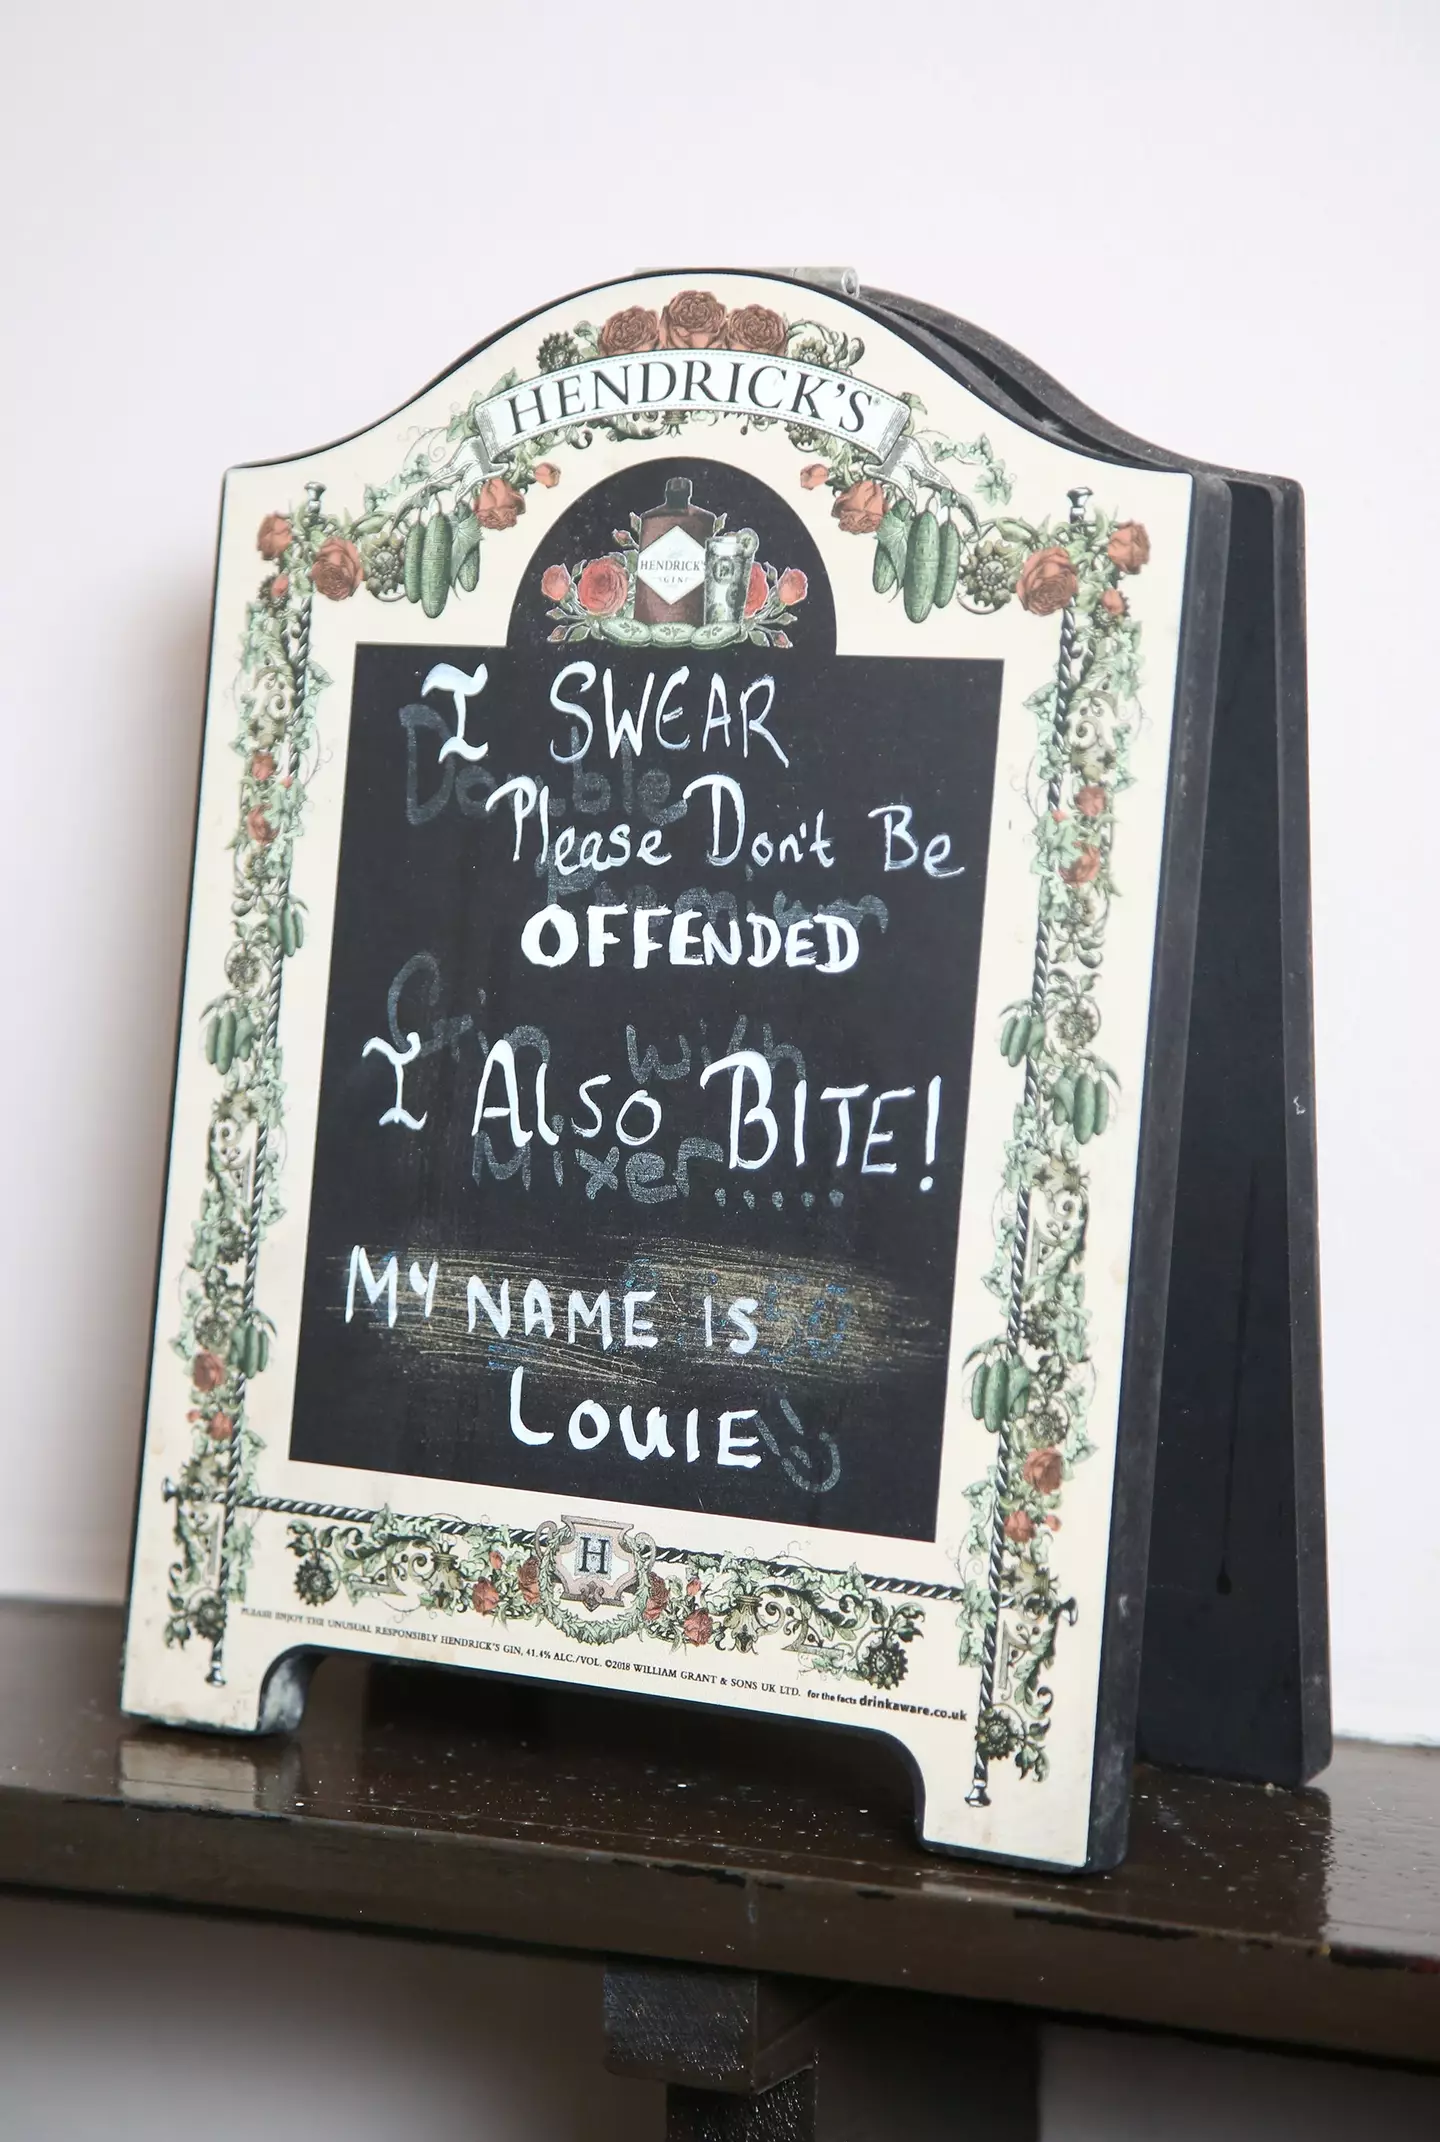 HENDRICK'S
HENDRICK'S
GIN
I SWEAR
Double
Please Don't Be
Premium
OFFENDED
Gin with
I Also BITE!
Mixer.....
MY NAME IS
50
LOUIE
H
PLEASE ENJOY THE UNUSUAL RESPONSIBLY HENDRICK'S GIN, 41.4% ALC./VOL. ©2018 WILLIAM GRANT & SONS UK LTD. for the facts drinkaware.co.uk